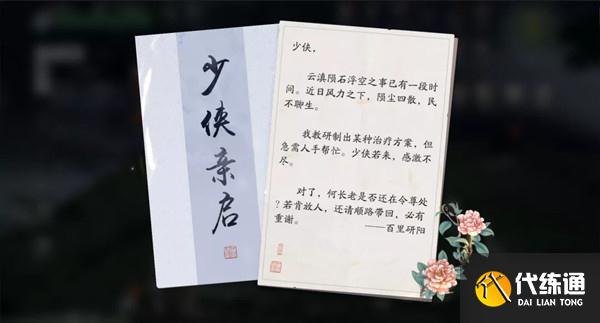 少侠亲启
少侠，
云滇陨石浮空之事已有一段时
间。近日风力之下，陨尘四散，民
不聊生。
我教研制出某种治疗方案，但
急需人手帮忙。少侠若来，感激不
尽。
对了，何长老是否还在令尊处
？若肯放人，还请顺路带回，必有
重谢。
——百里研阳
代练通
DAI LIAN TONG